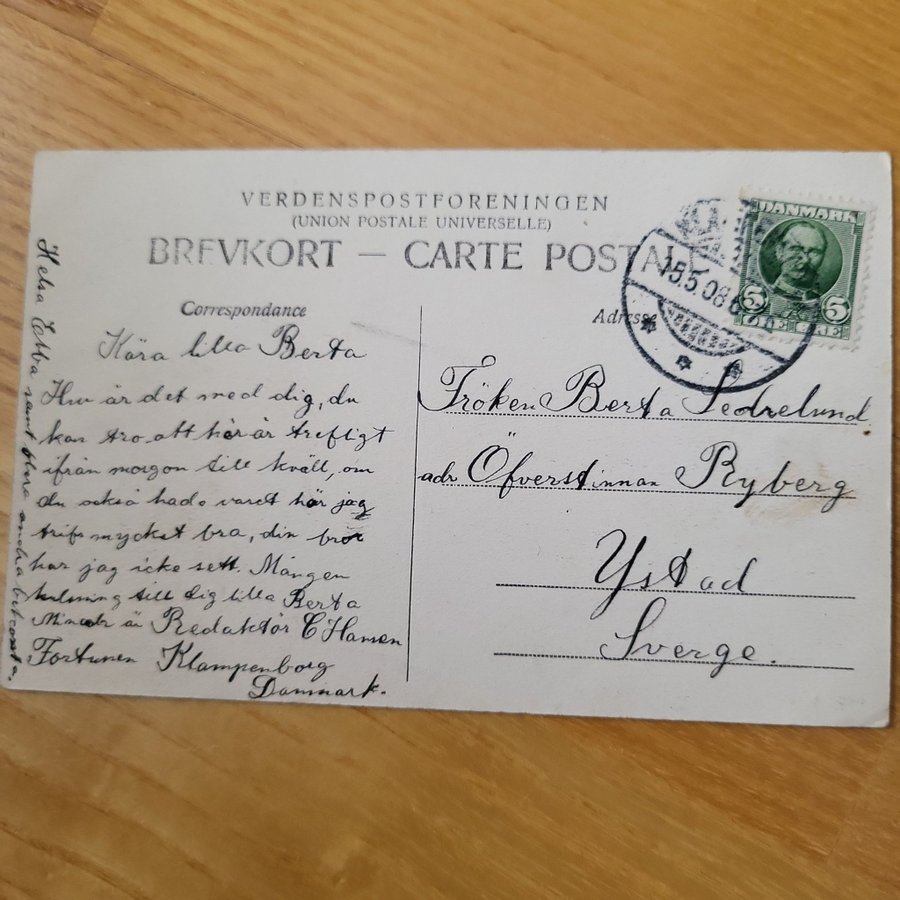 VERDENSPOSTFORENINGEN
(UNION POSTALE UNIVERSELLE)
BREVKORT — CARTE POSTAL
Correspondance
Kära lilla Berta
Hur är det med dig, du
kan tro att här är trefligt
ifrån morgon till kväll, om
du också hade varet här jag
trifs mycket bra, din bror
har jag icke sett. Mången
helsning till dig lilla Berta
är Redaktör C Hansen
Fortunen Klampenborg
Danmark.
Helsa Ebba samt flera andra bekanta.
Adresse
Fröken Berta Sedrelund
adr Öfverstinnan Ryberg
Ystad
Sverge.
DANMARK
5 5
ØRE ØRE
15.5.08